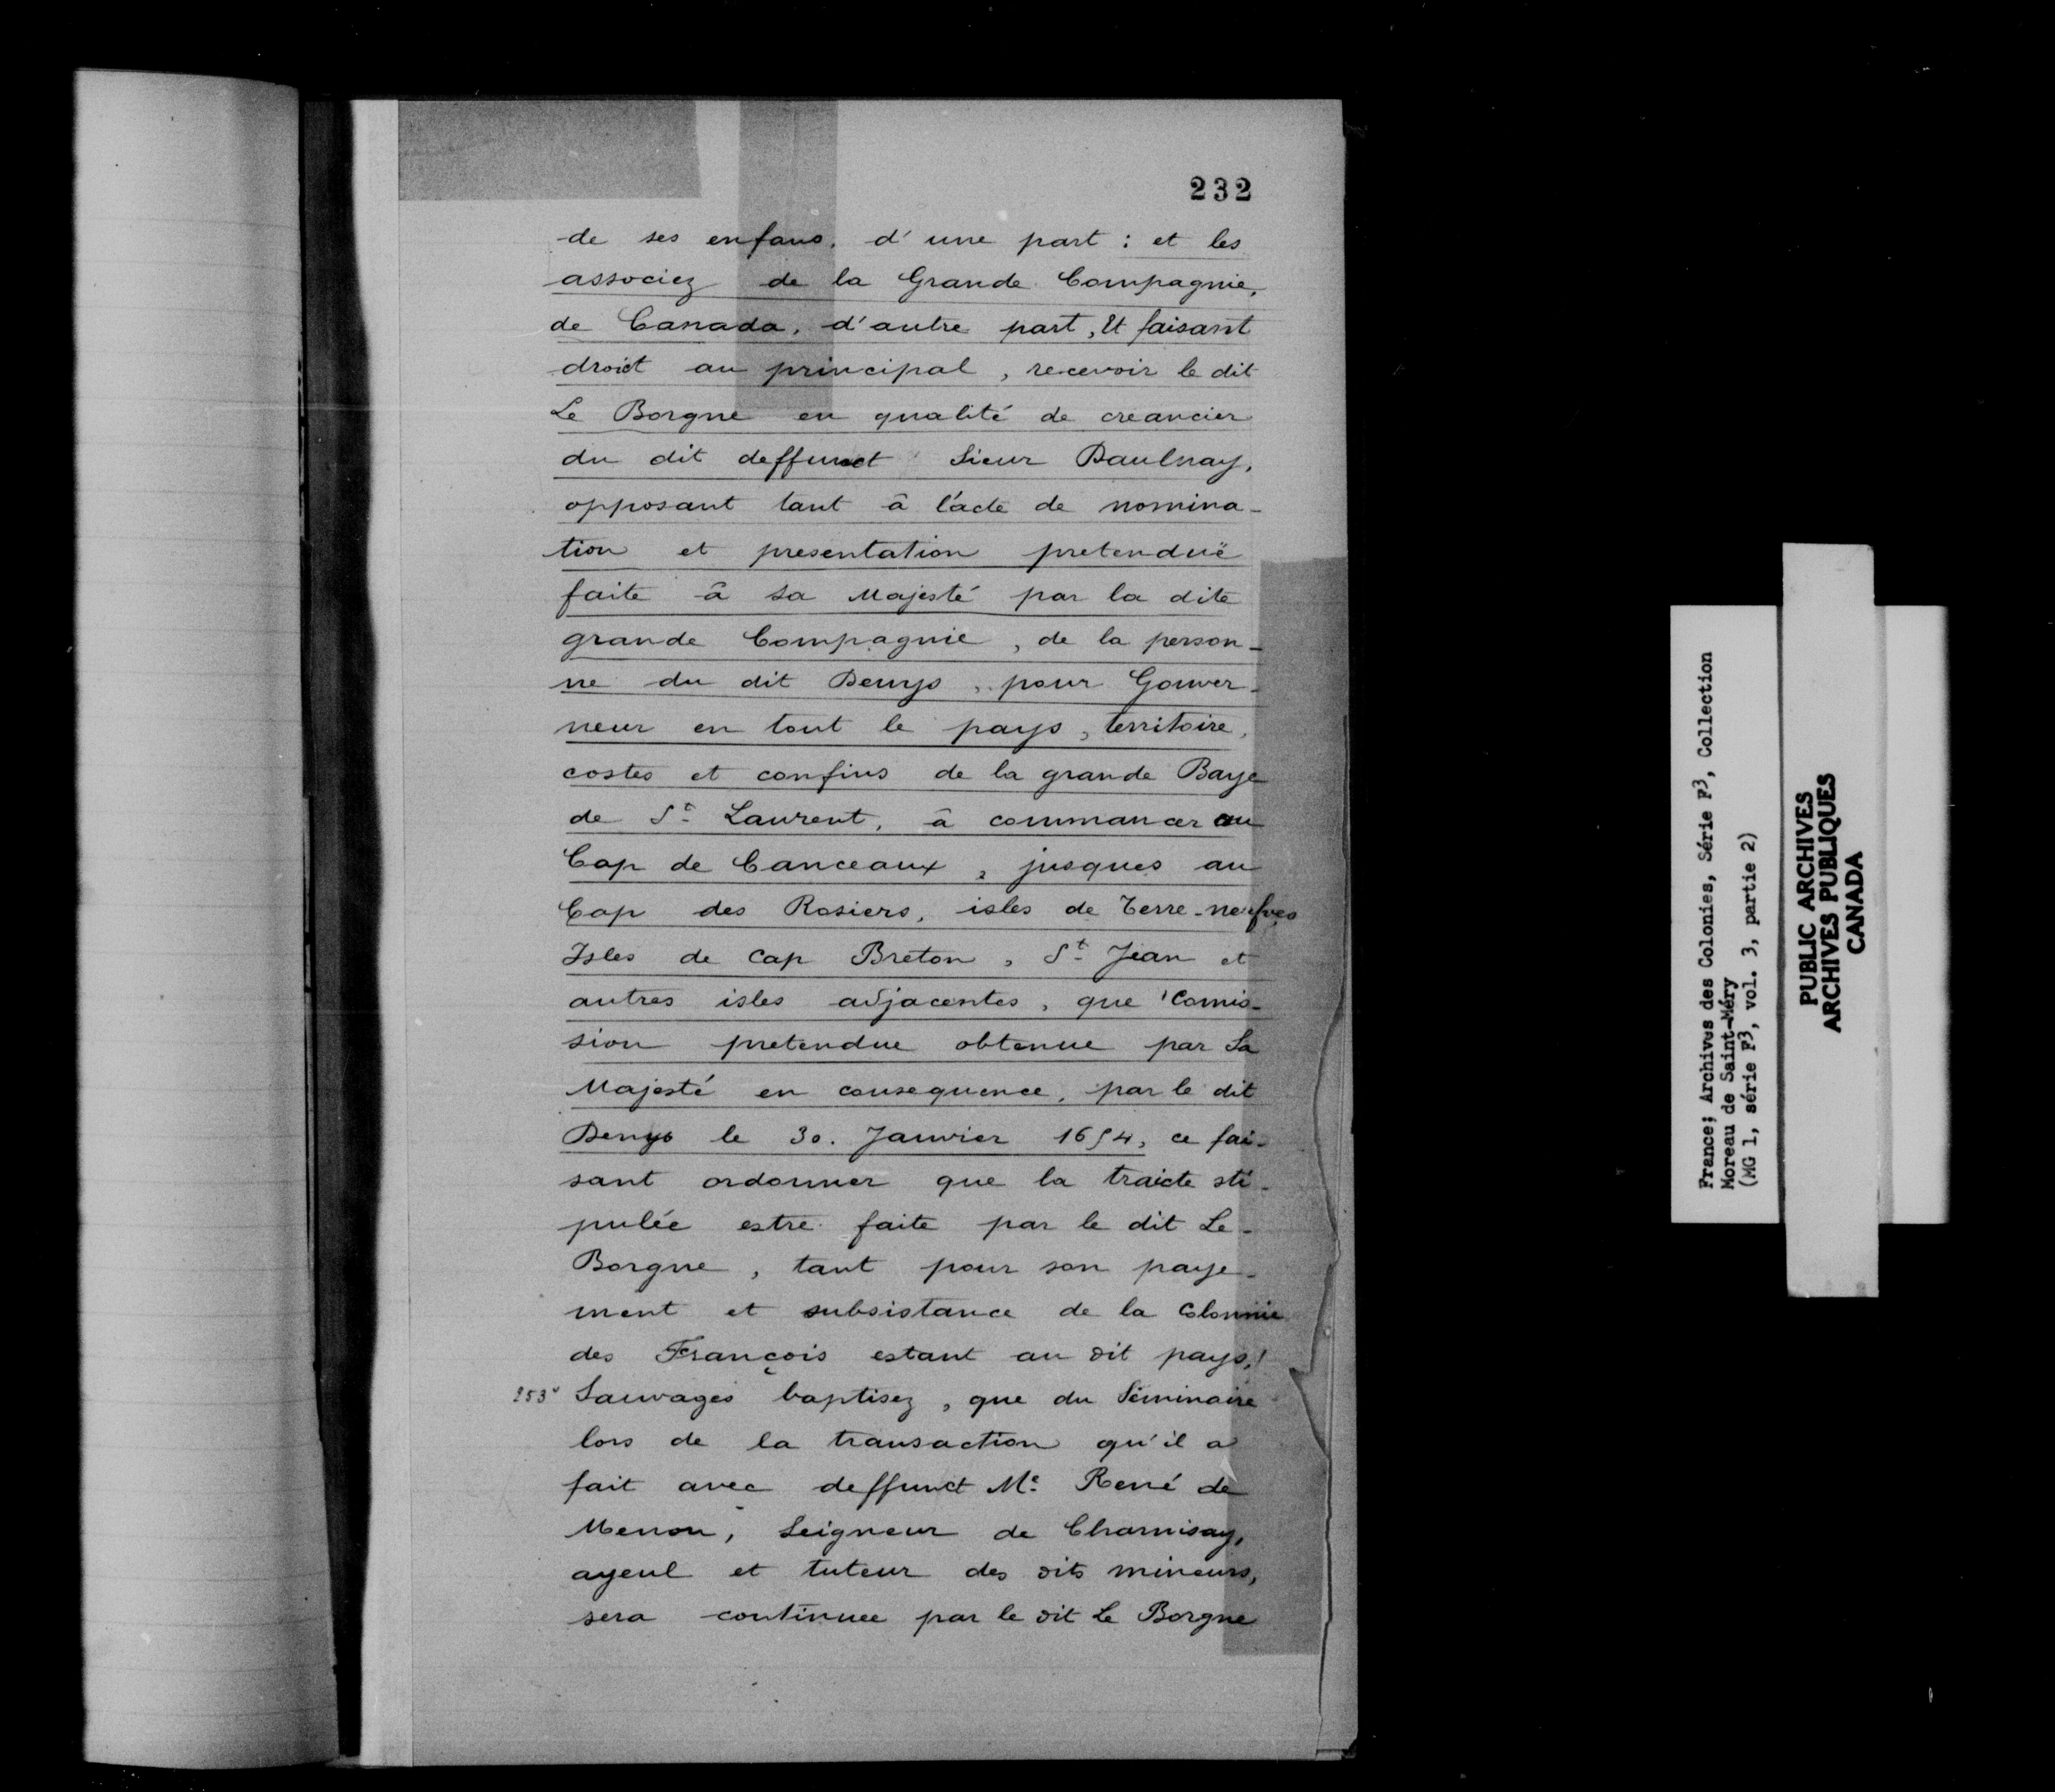 232
de ses enfans, d'une part : et les
associez de la Grande Compagnie,
de Canada, d'autre part, Et faisant
droict au principal, recevoir le dit
Le Borgne en qualité de creancier
du dit deffunct Sieur Daulnay,
opposant tant â l'acte de nomina-
tion et presentation pretenduë
faite â sa Majesté par la dite
grande Compagnie, de la person-
ne du dit Denys, pour Gouver-
neur en tout le pays, territoire,
costes et confins de la grande Baye
de St Laurent, â commancer au
Cap de Canceaux, jusques au
Cap des Rosiers, isles de Terre-neufves
Isles de Cap Breton, St Jean et
autres isles adjacentes, que Comis-
sion pretendue obtenue par Sa
Majesté en consequence, par le dit
Denys le 30. Janvier 1654, ce fai-
sant ordonner que la traicte sti-
pulée estre faite par le dit Le-
Borgne, tant pour son paye-
ment et subsistance de la Colonnie
des François estant au dit pays,
253v Sauvages baptisez, que du Séminaire
lors de la transaction qu'il a
fait avec deffunct Me René de
Menou, Seigneur de Charnisay,
ayeul et tuteur des dits mineurs,
sera continuee par le dit Le Borgne
France; Archives des Colonies, Série F3, Collection
Moreau de Saint-Méry
(MG 1, série F3, vol. 3, partie 2)
PUBLIC ARCHIVES
ARCHIVES PUBLIQUES
CANADA